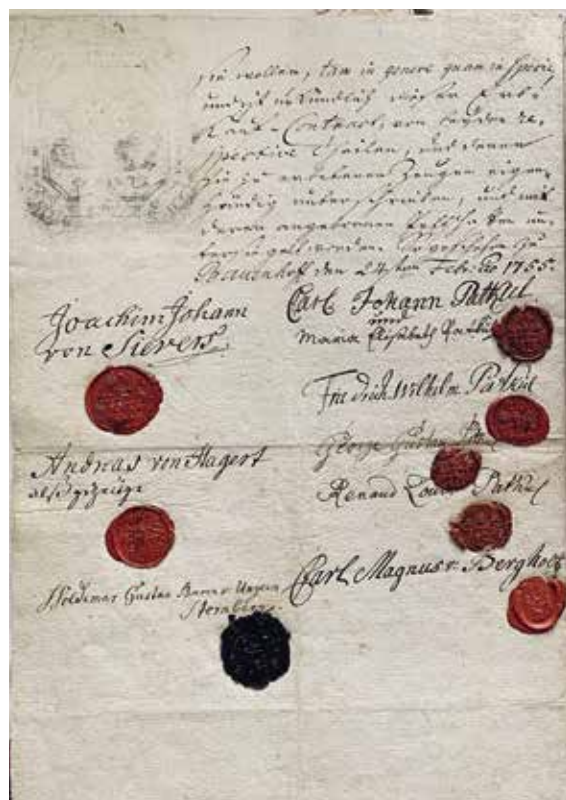 sie wollen, tam in genere quam in specie
Erb-
Kauf-Contract, von beyden re-
spective Theilen, und denen
hie zu erbetenen Zeugen eigen-
händig unterschrieben, und mit
deren angebornen Pettschaften un-
tersiegelt worden. So geschehen zu
Bauenhoff den 24sten Februar 1755.
Joachim Johann
von Sievers.
Carl Johann Patkul
und
Maria Elisabeth Patkul
Friedrich Wilhelm Patkul
George Gustav Patkul
Renaud Louis Patkul
Andreas von Hagert
als gezeuge
Carl Magnus v. Bergholtz
Woldemar Gustav Baron Ungern
Sternberg.